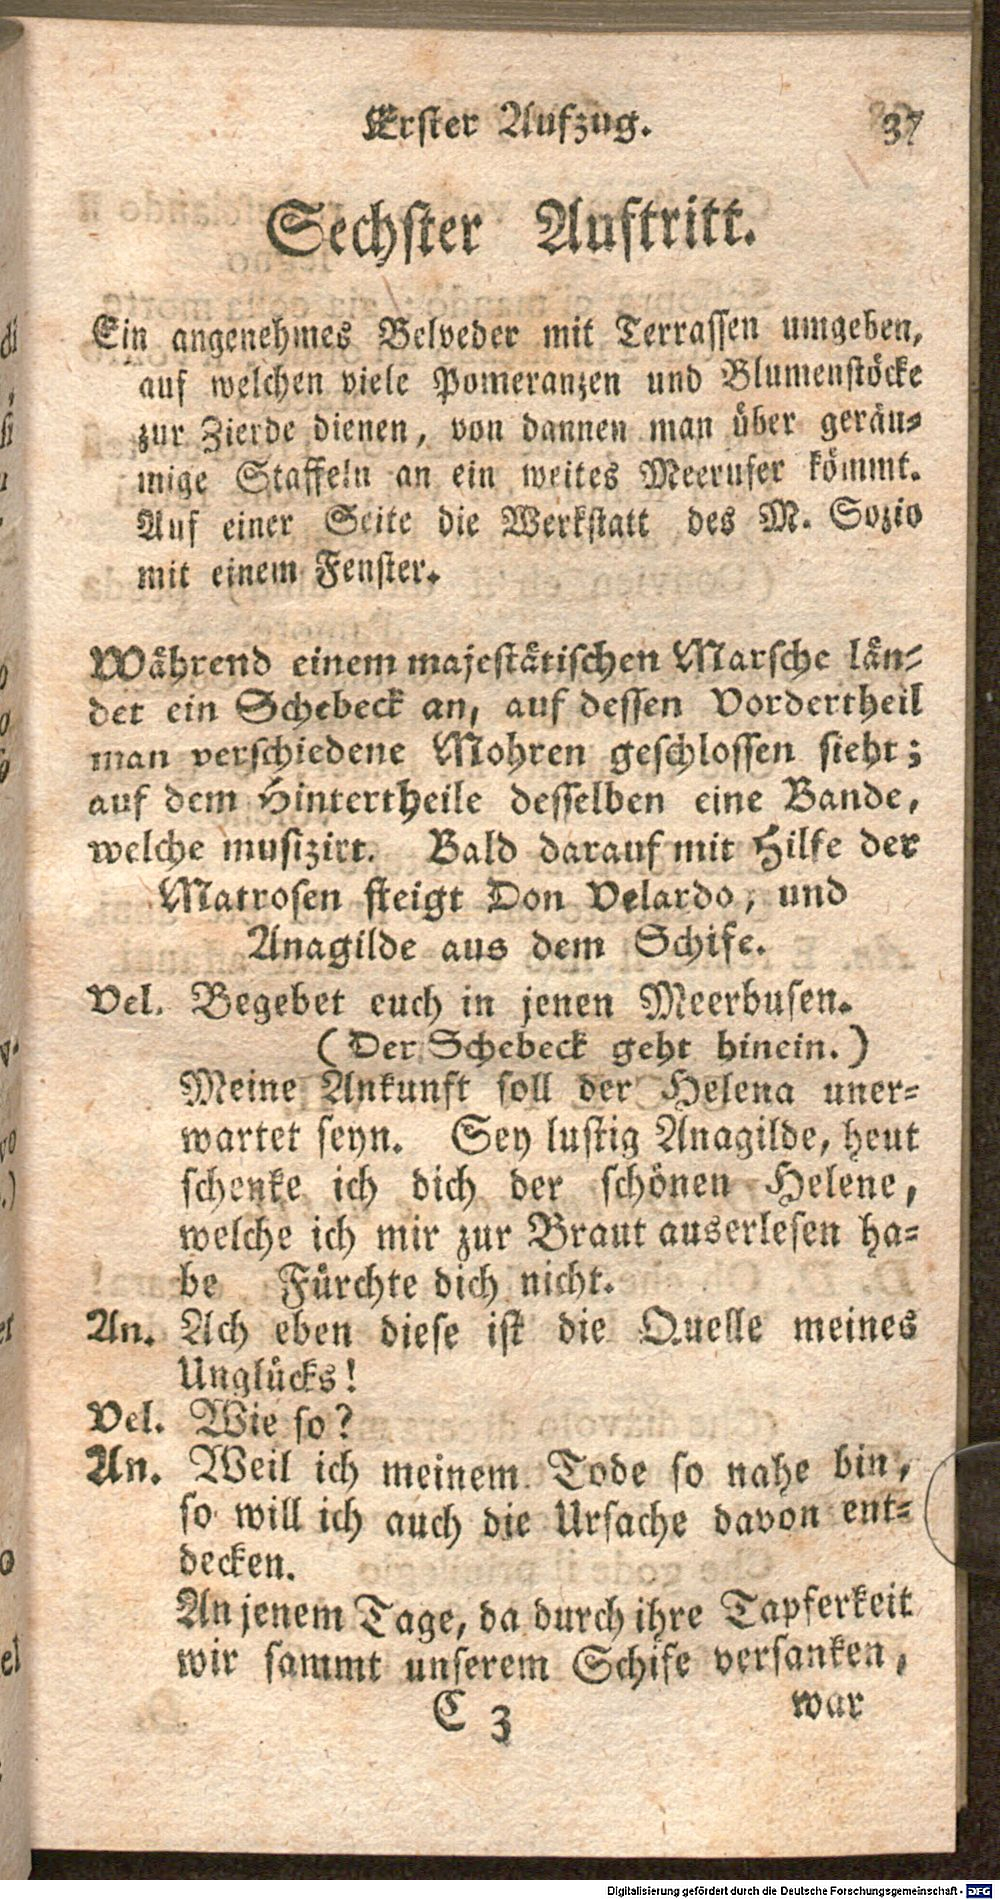 Erster Aufzug. 37
Sechster Auftritt.
Ein angenehmes Belveder mit Terrassen umgeben,
auf welchen viele Pomeranzen und Blumenstöcke
zur Zierde dienen, von dannen man über geräu-
mige Staffeln an ein weites Meerufer kömmt.
Auf einer Seite die Werkstatt des M. Sozio
mit einem Fenster.
Während einem majestätischen Marsche län-
det ein Schebeck an, auf dessen Vordertheil
man verschiedene Mohren geschlossen sieht;
auf dem Hintertheile desselben eine Bande,
welche musizirt. Bald darauf mit Hilfe der
Matrosen steigt Don Velardo, und
Anagilde aus dem Schife.
Vel. Begebet euch in jenen Meerbusen.
(Der Schebeck geht hinein.)
Meine Ankunft soll der Helena uner-
wartet seyn. Sey lustig Anagilde, heut
schenke ich dich der schönen Helene,
welche ich mir zur Braut auserlesen ha-
be Fürchte dich nicht.
An. Ach eben diese ist die Quelle meines
Unglücks!
Vel. Wie so?
An. Weil ich meinem Tode so nahe bin,
so will ich auch die Ursache davon ent-
decken.
An jenem Tage, da durch ihre Tapferkeit
wir sammt unserem Schife versanken,
C 3 war
di
,
si
el
Digitalisierung gefördert durch die Deutsche Forschungsgemeinschaft - DFG